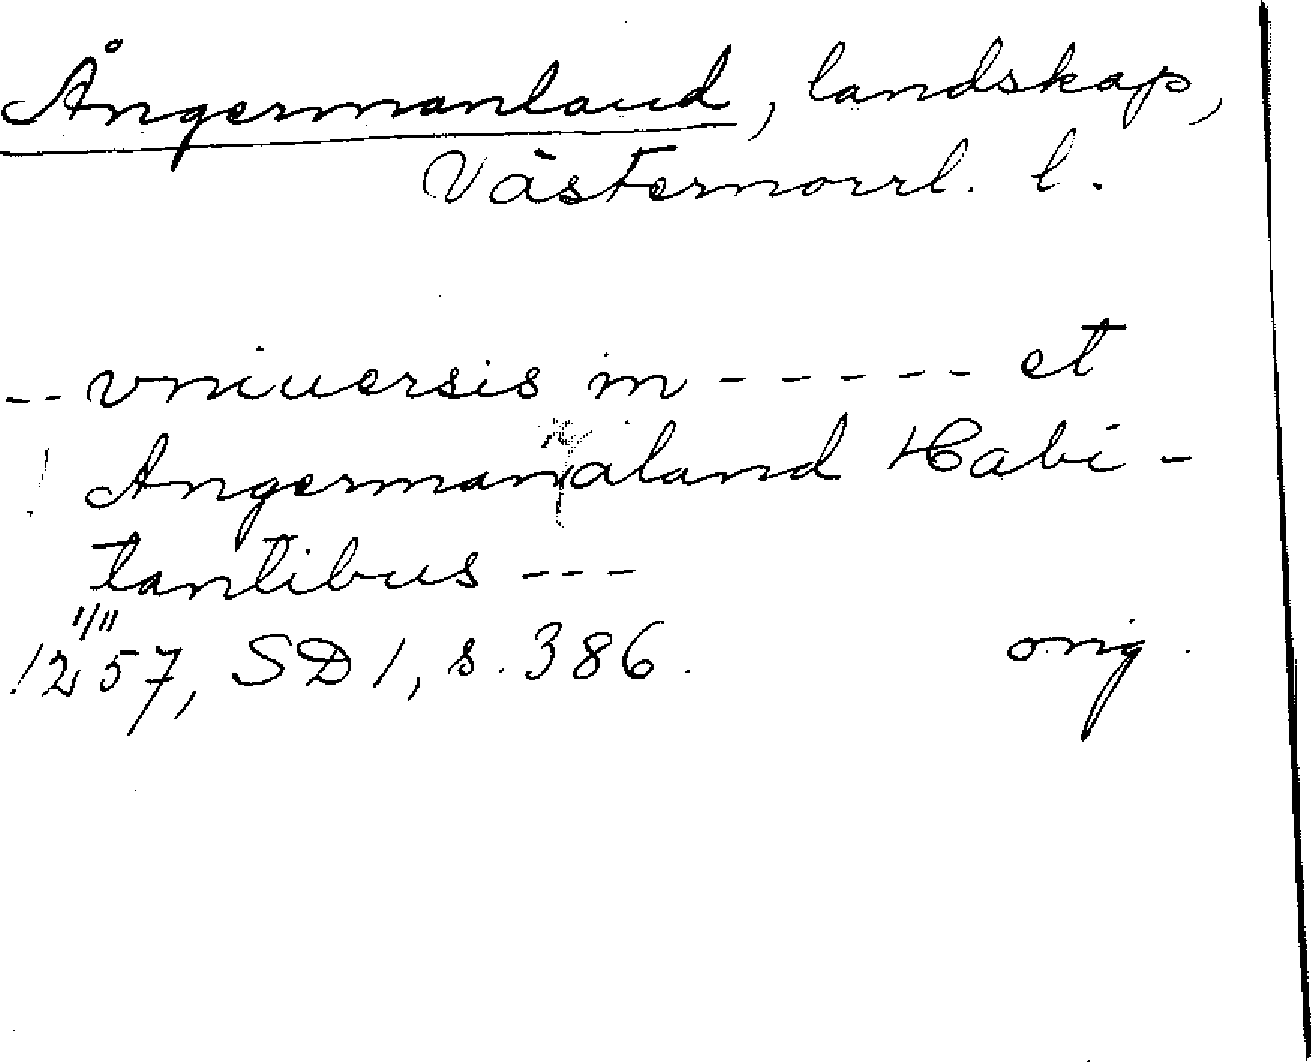 Ångermanland, landskap,
Västernorrl. l.
-- vniuersis in ------ et
! Angermannaland Habi-
tantibus ---
1/11
1257, SD 1, s. 386. orig.